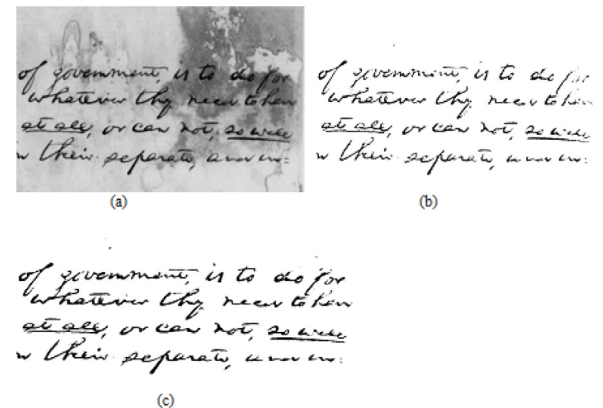 of government, is to do for
whatever they need to have
at all, or can not, so well
their separate, and in
(a)
of government, is to do for
whatever they need to have
at all, or can not, so well
their separate, and in
(b)
of government, is to do for
whatever they need to have
at all, or can not, so well
their separate, and in
(c)